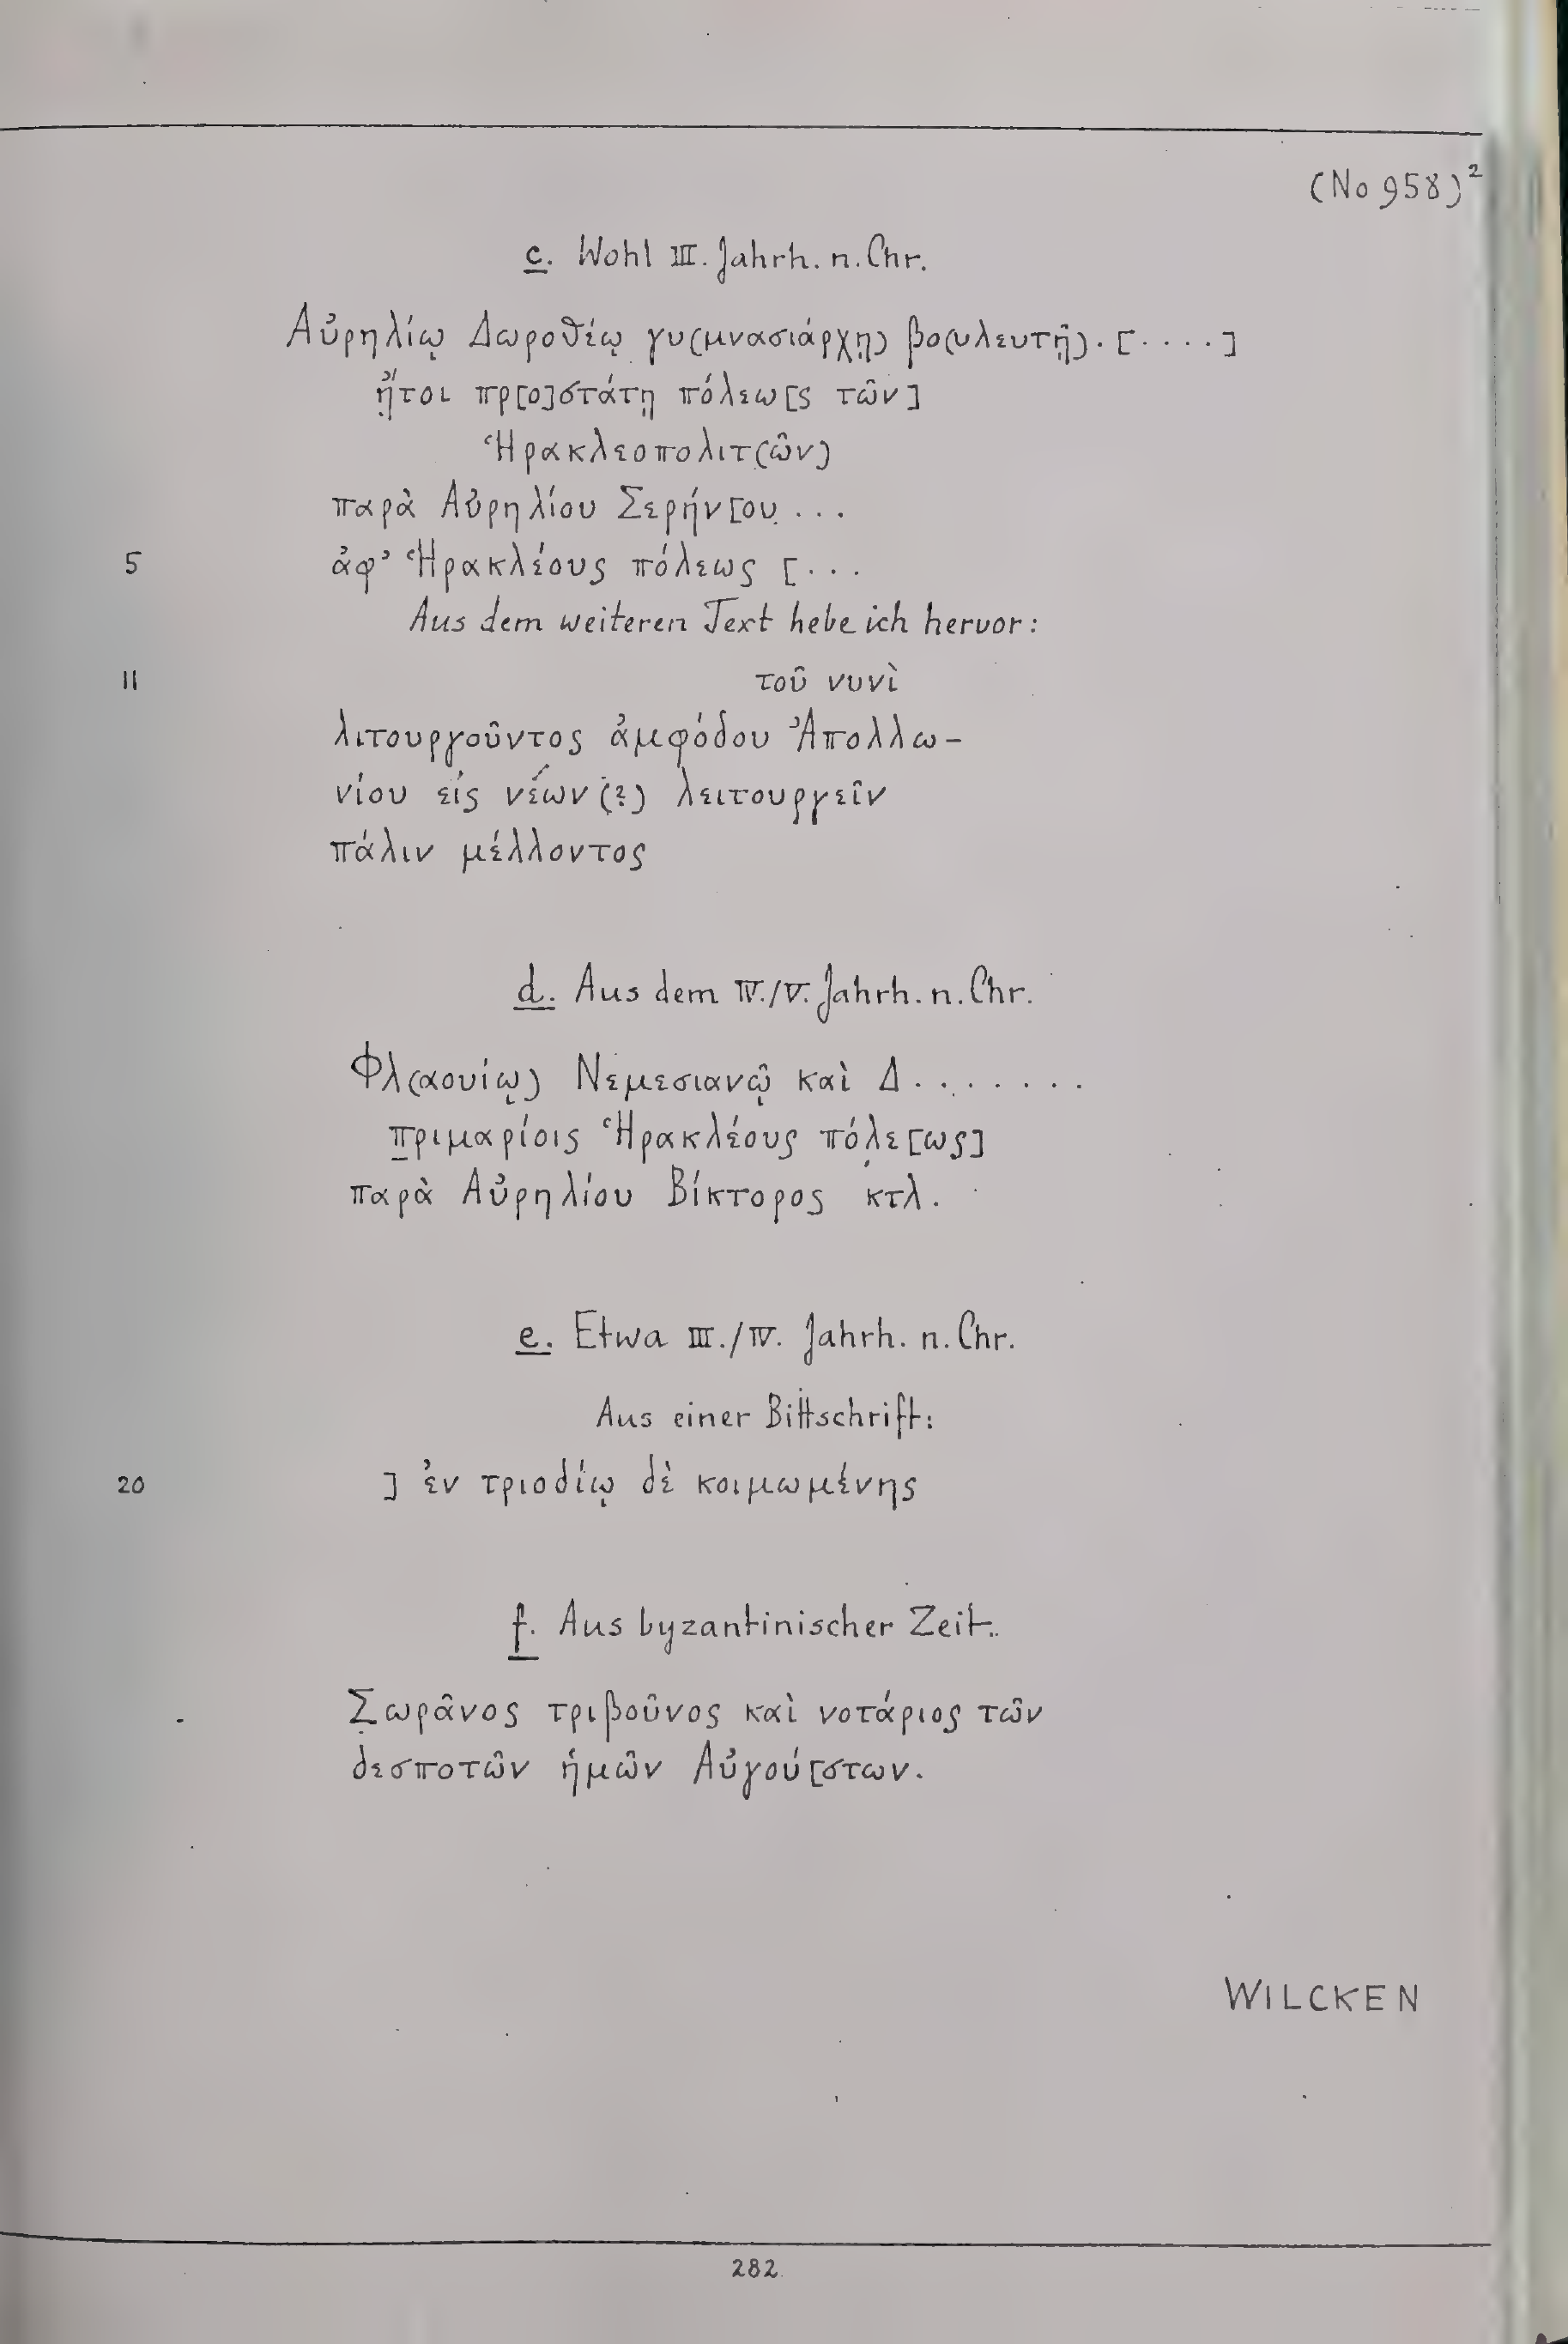 (No 958)²
c. Wohl III. Jahrh. n. Chr.
Αὐρηλίῳ Δωροθέῳ γυ(μνασιάρχῃ) βο(υλευτῇ). [....]
ἤτοι πρ[ο]στάτῃ πόλεω[ς τῶν]
Ἡρακλεοπολιτ(ῶν)
παρὰ Αὐρηλίου Σερήν[ου ...
5 ἀφ' Ἡρακλέους πόλεως [...
Aus dem weiteren Text hebe ich hervor:
11 τοῦ νυνὶ
λιτουργοῦντος ἀμφόδου Ἀπολλω-
νίου εἰς νέων (?) λειτουργεῖν
πάλιν μέλλοντος
d. Aus dem IV./V. Jahrh. n. Chr.
Φλ(αουίῳ) Νεμεσιανῷ καὶ Δ.......
πριμαρίοις Ἡρακλέους πόλε[ως]
παρὰ Αὐρηλίου Βίκτορος κτλ.
e. Etwa III./IV. Jahrh. n. Chr.
Aus einer Bittschrift:
20 ] ἐν τριοδίῳ δὲ κοιμωμένης
f. Aus byzantinischer Zeit.
Σωρᾶνος τριβοῦνος καὶ νοτάριος τῶν
δεσποτῶν ἡμῶν Αὐγού[στων.
WILCKEN
282